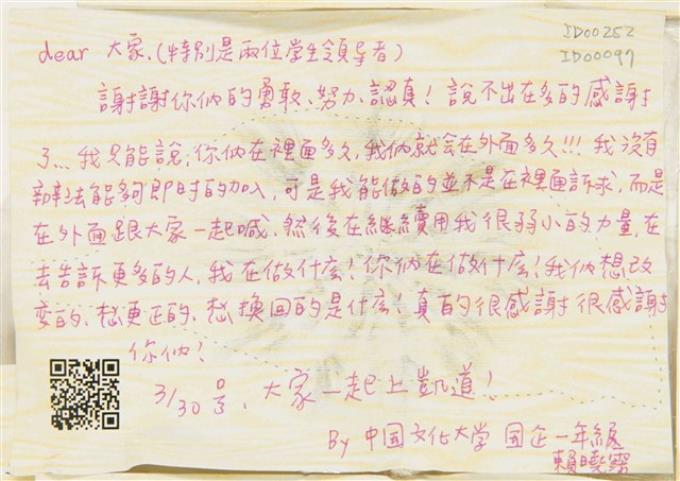 ID00252
dear 大家、(特別是兩位學生領导者)
ID00097
謝謝你们的勇敢、努力、認真！說不出在多的感謝
了... 我只能說；你们在裡面多久，我们就会在外面多久!!! 我沒有
辦法能夠即时的加入，可是我能做的並不是在裡面訴求，而是
在外面跟大家一起喊、然後在継續用我很弱小的力量，在
去告訴更多的人，我在做什庅！你们在做什庅！我们想改
変的、想更正的、想換回的是什庅！真的很感謝很感謝
你们！
3/30号、大家一起上凱道！
By 中国文化大学 国企一年級
賴曉